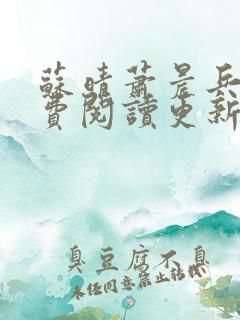 蘇晴蕭晨兵
費閱讀更新
臭豆腐不臭
未经同意禁止转载